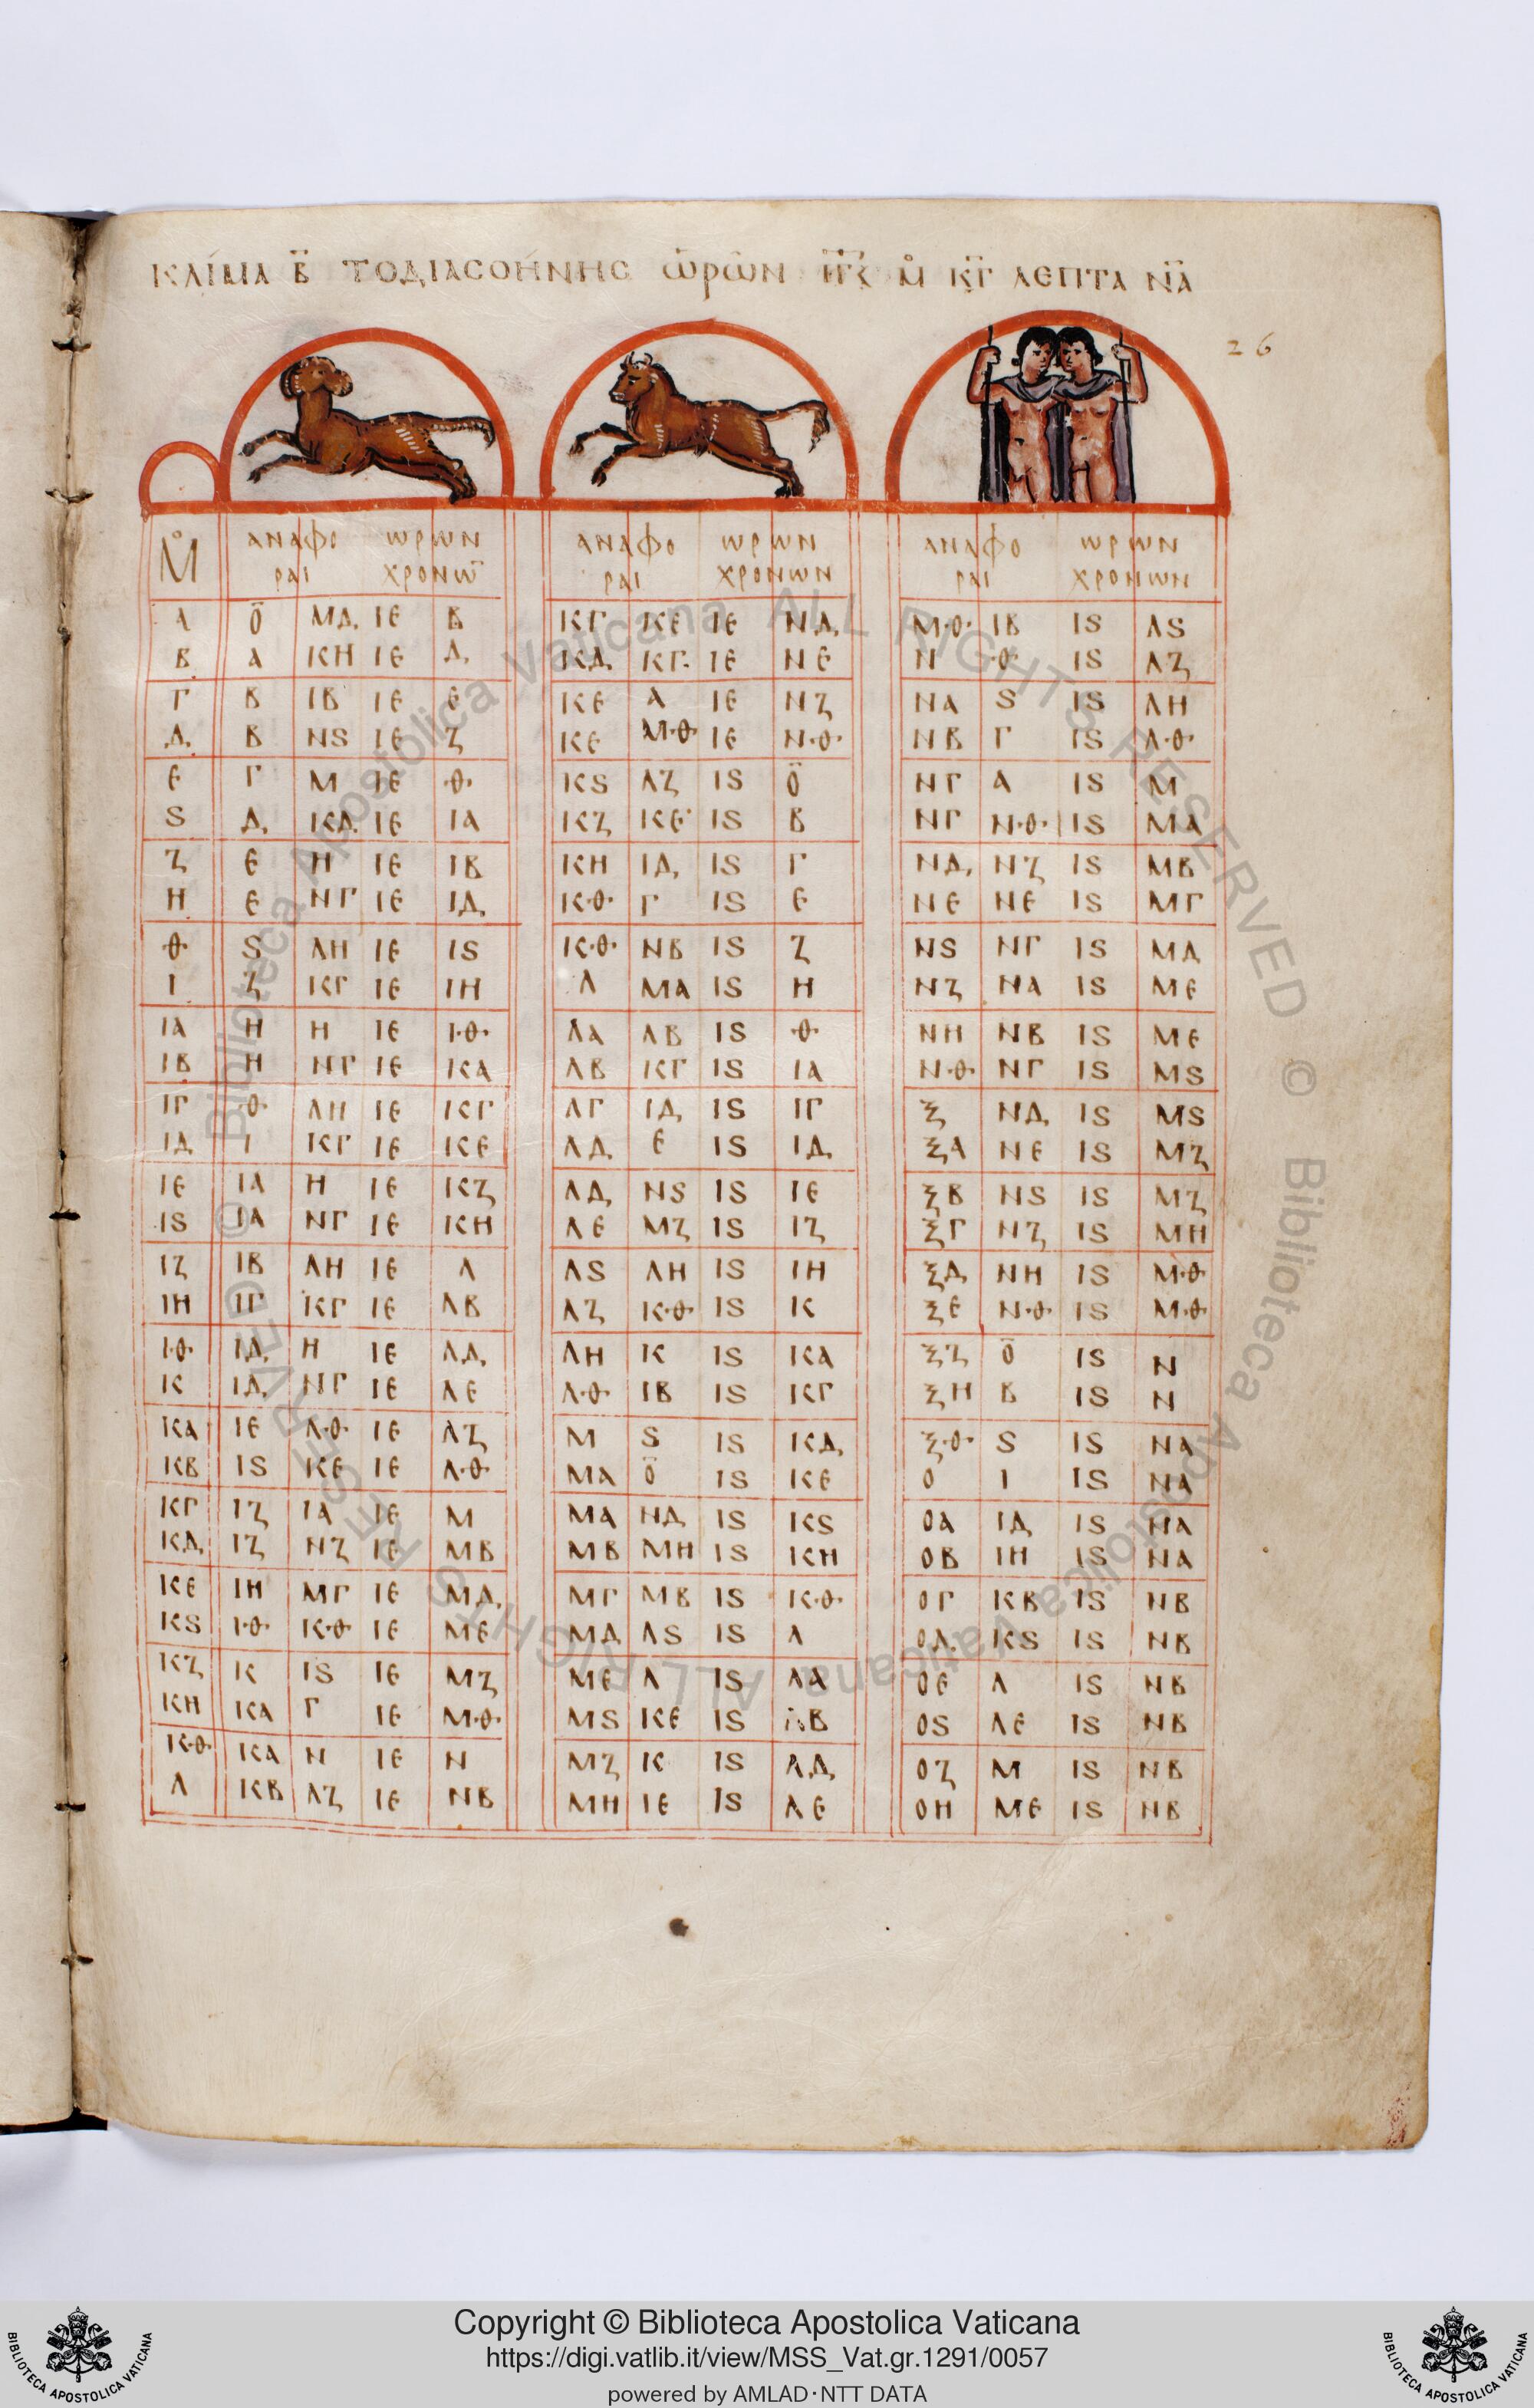 ΚΛΙΜΑ Β ΤΟΔΙΑСΟΗΝΗС ΩΡΩΝ ΜΟ ΚΓ ΛΕΠΤΑ ΝΑ
26
ΜΟ ΑΝΑΦΟ ΩΡΩΝ ΑΝΑΦΟ ΩΡΩΝ ΑΝΑΦΟ ΩΡΩΝ
ΡΑΙ ΧΡΟΝΩ ΡΑΙ ΧΡΟΝΩΝ ΡΑΙ ΧΡΟΝΩΝ
Α Ο ΜΔ ΙΕ Β ΚΓ ΚΕ ΙΕ ΝΔ Μ·Θ· ΙΒ ΙS ΛS
Β Α ΚΗ ΙΕ Δ ΚΔ ΚΓ ΙΕ ΝΕ Ν ·Θ· ΙS ΛΖ
Γ Β ΙΒ ΙΕ Ε ΚΕ Α ΙΕ ΝΖ ΝΑ S ΙS ΛΗ
Δ Β ΝS ΙΕ Ζ ΚΕ Μ·Θ· ΙΕ Ν·Θ· ΝΒ Γ ΙS Λ·Θ·
Ε Γ Μ ΙΕ ·Θ· ΚS ΛΖ ΙS Ο ΝΓ Α ΙS Μ
S Δ ΚΔ ΙΕ ΙΑ ΚΖ ΚΕ ΙS Β ΝΓ Ν·Θ· ΙS ΜΑ
Ζ Ε Η ΙΕ ΙΒ ΚΗ ΙΔ ΙS Γ ΝΔ ΝΖ ΙS ΜΒ
Η Ε ΝΓ ΙΕ ΙΔ Κ·Θ· Γ ΙS Ε ΝΕ ΝΕ ΙS ΜΓ
·Θ· S ΛΗ ΙΕ ΙS Κ·Θ· ΝΒ ΙS Ζ ΝS ΝΓ ΙS ΜΔ
Ι Ζ ΚΓ ΙΕ ΙΗ Λ ΜΑ ΙS Η ΝΖ ΝΑ ΙS ΜΕ
ΙΑ Η Η ΙΕ Ι·Θ· ΛΑ ΛΒ ΙS ·Θ· ΝΗ ΝΒ ΙS ΜΕ
ΙΒ Η ΝΓ ΙΕ ΚΑ ΛΒ ΚΓ ΙS ΙΑ Ν·Θ· ΝΓ ΙS ΜS
ΙΓ ·Θ· ΛΗ ΙΕ ΚΓ ΛΓ ΙΔ ΙS ΙΓ Ξ ΝΔ ΙS ΜS
ΙΔ Ι ΚΓ ΙΕ ΚΕ ΛΔ Ε ΙS ΙΔ ΞΑ ΝΕ ΙS ΜΖ
ΙΕ ΙΑ Η ΙΕ ΚΖ ΛΔ ΝS ΙS ΙΕ ΞΒ ΝS ΙS ΜΖ
ΙS ΙΑ ΝΓ ΙΕ ΚΗ ΛΕ ΜΖ ΙS ΙΖ ΞΓ ΝΖ ΙS ΜΗ
ΙΖ ΙΒ ΛΗ ΙΕ Λ ΛS ΛΗ ΙS ΙΗ ΞΔ ΝΗ ΙS Μ·Θ·
ΙΗ ΙΓ ΚΓ ΙΕ ΛΒ ΛΖ Κ·Θ· ΙS Κ ΞΕ Ν·Θ· ΙS Μ·Θ·
Ι·Θ· ΙΔ Η ΙΕ ΛΔ ΛΗ Κ ΙS ΚΑ ΞΖ Ο ΙS Ν
Κ ΙΔ ΝΓ ΙΕ ΛΕ Λ·Θ· ΙΒ ΙS ΚΓ ΞΗ Β ΙS Ν
ΚΑ ΙΕ Λ·Θ· ΙΕ ΛΖ Μ S ΙS ΚΔ Ξ·Θ· S ΙS ΝΑ
ΚΒ ΙS ΚΕ ΙΕ Λ·Θ· ΜΑ Ο ΙS ΚΕ Ο Ι ΙS ΝΑ
ΚΓ ΙΖ ΙΑ ΙΕ Μ ΜΑ ΝΔ ΙS ΚS ΟΑ ΙΔ ΙS ΝΑ
ΚΔ ΙΖ ΝΖ ΙΕ ΜΒ ΜΒ ΜΗ ΙS ΚΗ ΟΒ ΙΗ ΙS ΝΑ
ΚΕ ΙΗ ΜΓ ΙΕ ΜΔ ΜΓ ΜΒ ΙS Κ·Θ· ΟΓ ΚΒ ΙS ΝΒ
ΚS Ι·Θ· Κ·Θ· ΙΕ ΜΕ ΜΔ ΛS ΙS Λ ΟΔ ΚS ΙS ΝΒ
ΚΖ Κ ΙS ΙΕ ΜΖ ΜΕ Λ ΙS ΛΑ ΟΕ Λ ΙS ΝΒ
ΚΗ ΚΑ Γ ΙΕ Μ·Θ· ΜS ΚΕ ΙS ΛΒ ΟS ΛΕ ΙS ΝΒ
Κ·Θ· ΚΑ Ν ΙΕ Ν ΜΖ Κ ΙS ΛΔ ΟΖ Μ ΙS ΝΒ
Λ ΚΒ ΛΖ ΙΕ ΝΒ ΜΗ ΙΕ ΙS ΛΕ ΟΗ ΜΕ ΙS ΝΒ
© Biblioteca Apostolica Vaticana ALL RIGHTS RESERVED © Biblioteca Apostolica Vaticana ALL RIGHTS RESERVED
Copyright © Biblioteca Apostolica Vaticana
https://digi.vatlib.it/view/MSS_Vat.gr.1291/0057
powered by AMLAD·NTT DATA
BIBLIOTECA APOSTOLICA VATICANA
BIBLIOTECA APOSTOLICA VATICANA